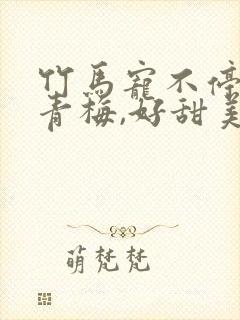 竹马宠不停
青梅,好甜美
萌梵梵